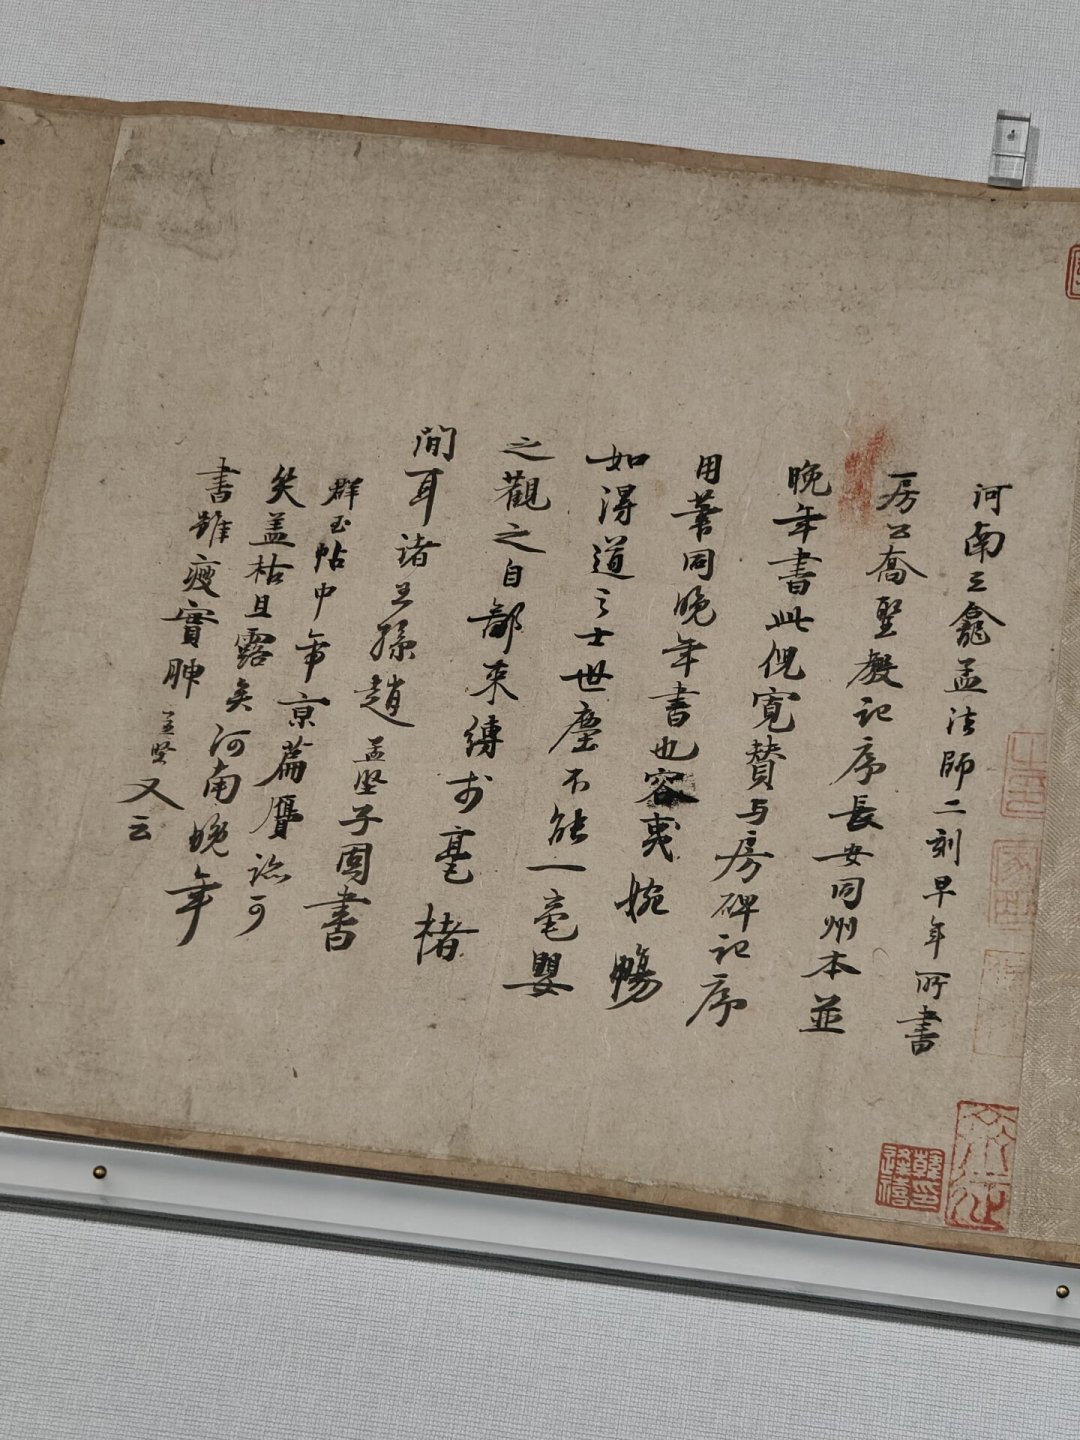 河南三龕孟法師二刻早年所書
房公喬聖教記序長安同州本並
晚年書此倪寬贊与房碑記序
用筆同晚年書也容夷婉暢
如得道之士世塵不能一毫嬰
之觀之自鄙束縛於毫楮
間耳諸王孫趙孟堅子固書
群玉帖中帝京篇贋跡可
矣盖枯且露矣河南晚年
書雖瘦實腴孟堅又云